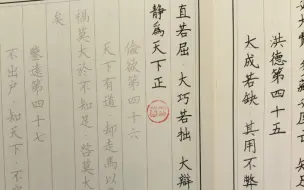 洪德第四十五
大成若缺 其用不弊
直若屈 大巧若拙 大辯
靜為天下正
儉欲第四十六
天下有道 卻走馬以
禍莫大於不知足 咎莫大
矣
鑒遠第四十七
不出戶 知天下 不